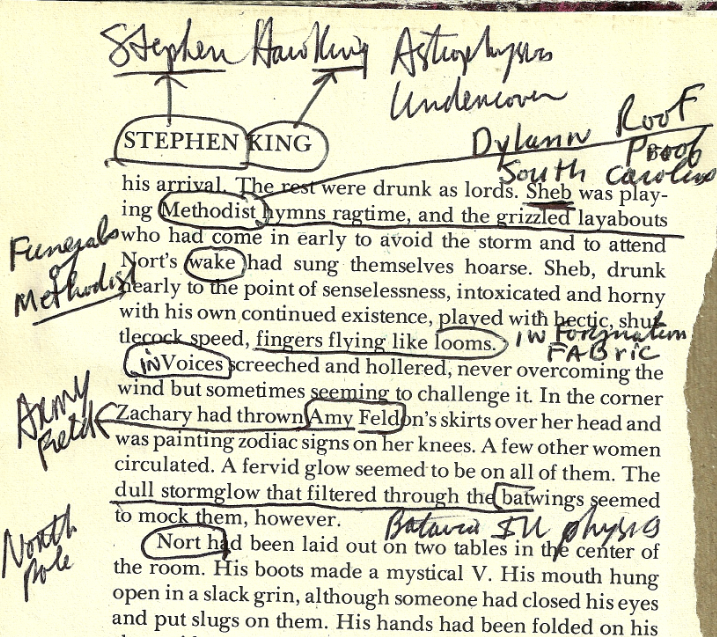 Stephen Hawking Astrophysics
Undercover
STEPHEN KING
Dylann Roof
Proof
South Carolina
his arrival. The rest were drunk as lords. Sheb was play-
ing Methodist hymns ragtime, and the grizzled layabouts
who had come in early to avoid the storm and to attend
Funerals
Nort's wake had sung themselves hoarse. Sheb, drunk
Methodist
nearly to the point of senselessness, intoxicated and horny
with his own continued existence, played with hectic, shut
tlecock speed, fingers flying like looms.
in Formation
FABRIC
inVoices screeched and hollered, never overcoming the
wind but sometimes seeming to challenge it. In the corner
Army
Field
Zachary had thrown Amy Feldon's skirts over her head and
was painting zodiac signs on her knees. A few other women
circulated. A fervid glow seemed to be on all of them. The
dull stormglow that filtered through the batwings seemed
to mock them, however.
Batavia Ill physics
North
Pole
Nort had been laid out on two tables in the center of
the room. His boots made a mystical V. His mouth hung
open in a slack grin, although someone had closed his eyes
and put slugs on them. His hands had been folded on his